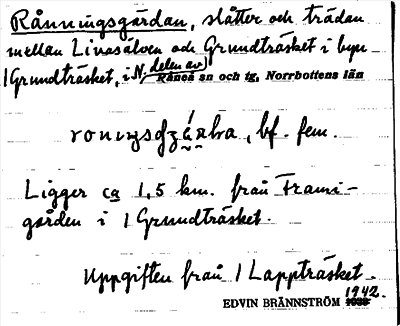 Rånningsgärdan, slåtter och trädan
mellan Linasälven och Grundträsket i byn
Grundträsket, i N. delen av
Råneå sn och tg, Norrbottens län
bf. fem.
Ligger ca 1,5 km. från Frami-
gården i Grundträsket.
Uppgiften från Lappträsket.
1942.
EDVIN BRÄNNSTRÖM 1938